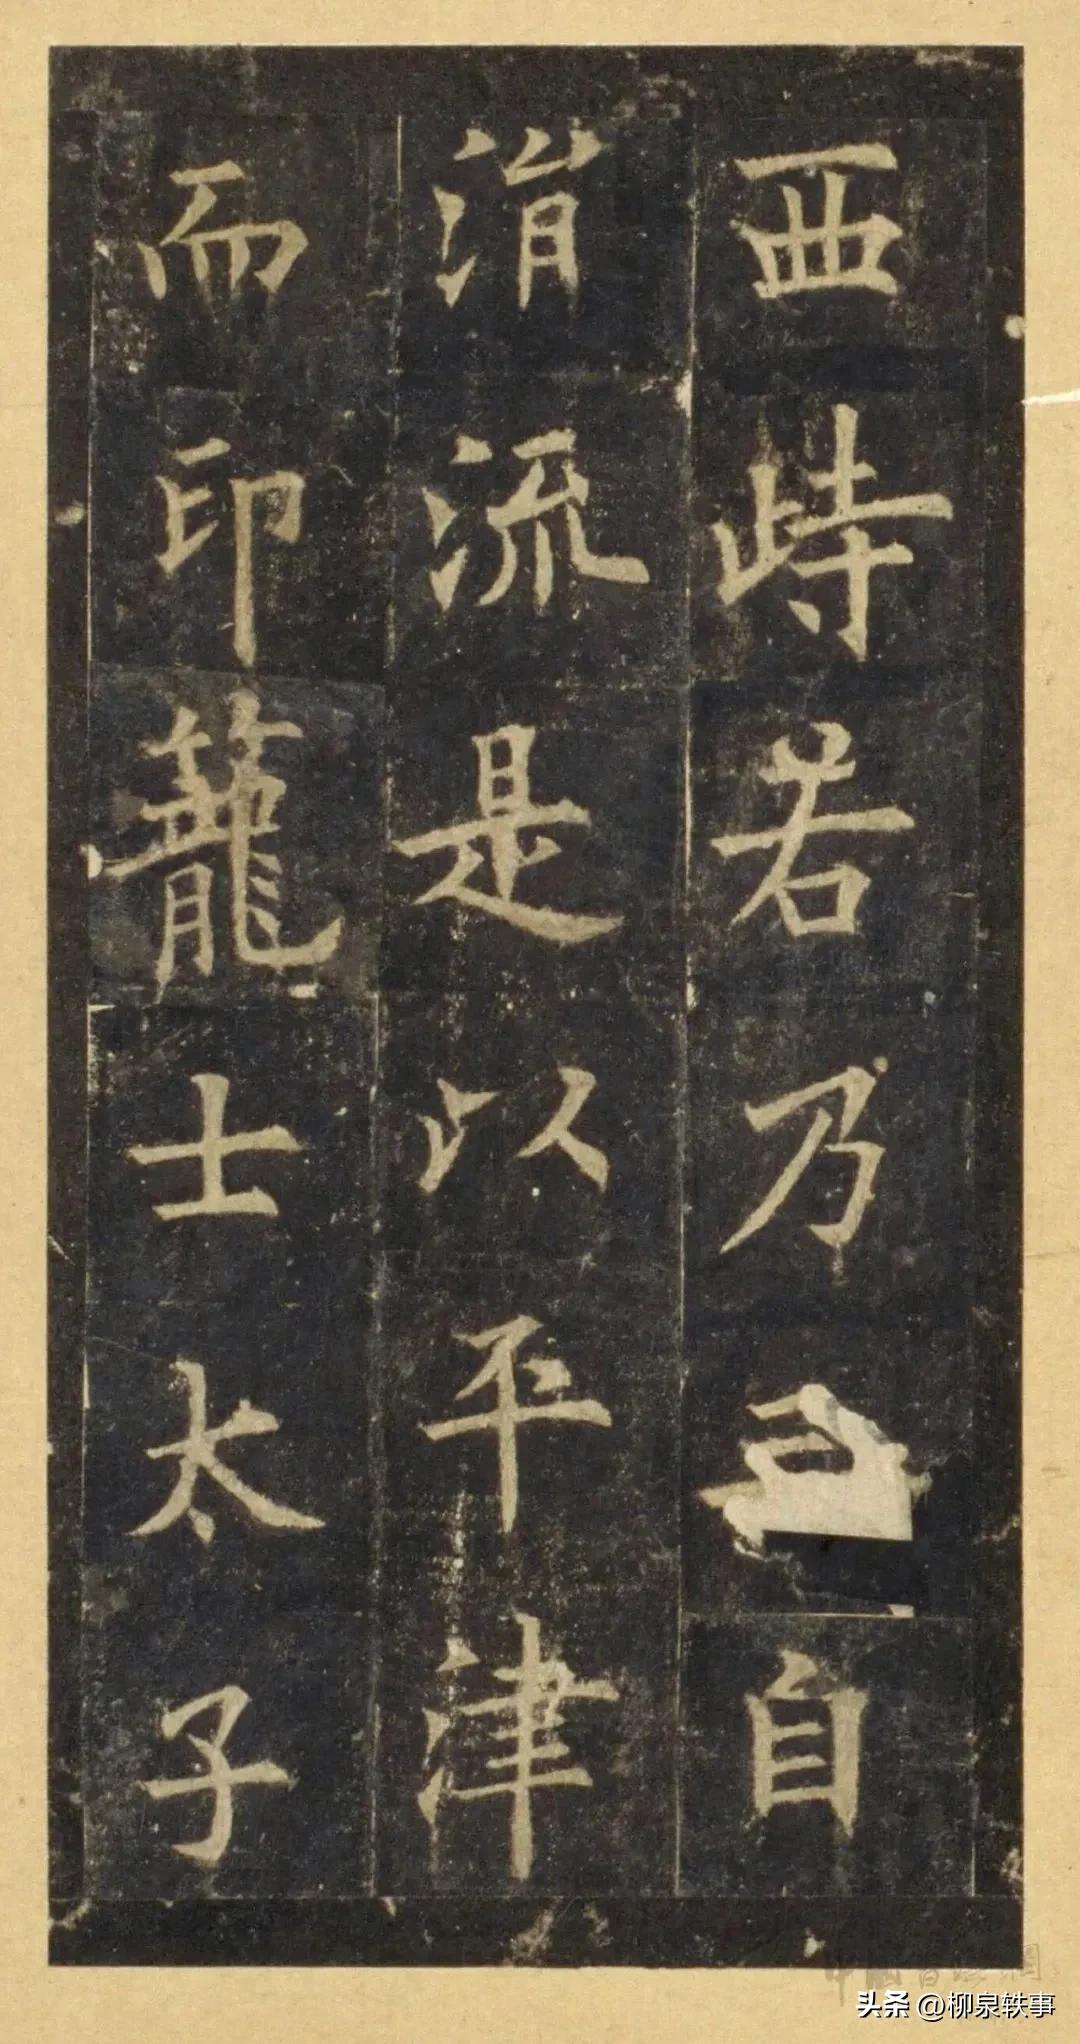 西峙若乃自
涓流是以平津
而印籠士太子
头条 @柳泉轶事